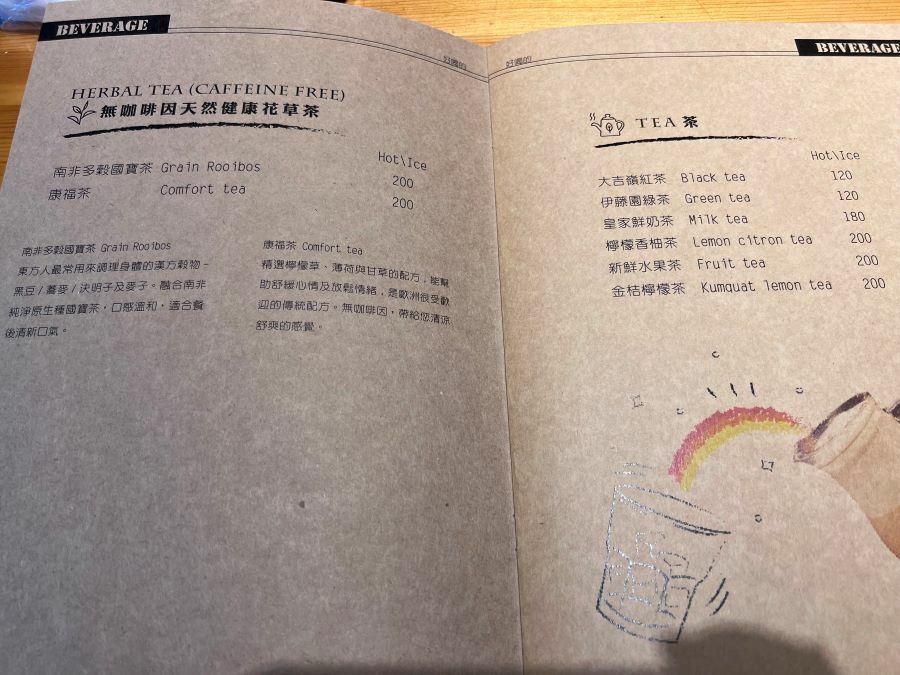 BEVERAGE
好喝的
HERBAL TEA (CAFFEINE FREE)
無咖啡因天然健康花草茶
Hot\Ice
南非多穀國寶茶 Grain Rooibos 200
康福茶 Comfort tea 200
南非多穀國寶茶 Grain Rooibos
東方人最常用來調理身體的漢方穀物-
黑豆/蕎麥/決明子及麥子。融合南非
純淨原生種國寶茶，口感溫和，適合餐
後清新口氣。
康福茶 Comfort tea
精選檸檬草、薄荷與甘草的配方，能幫
助舒緩心情及放鬆情緒，是歐洲很受歡
迎的傳統配方。無咖啡因，帶給您清涼
舒爽的感覺。
好喝的
BEVERAGE
TEA 茶
Hot\Ice
大吉嶺紅茶 Black tea 120
伊藤園綠茶 Green tea 120
皇家鮮奶茶 Milk tea 180
檸檬香柚茶 Lemon citron tea 200
新鮮水果茶 Fruit tea 200
金桔檸檬茶 Kumquat lemon tea 200